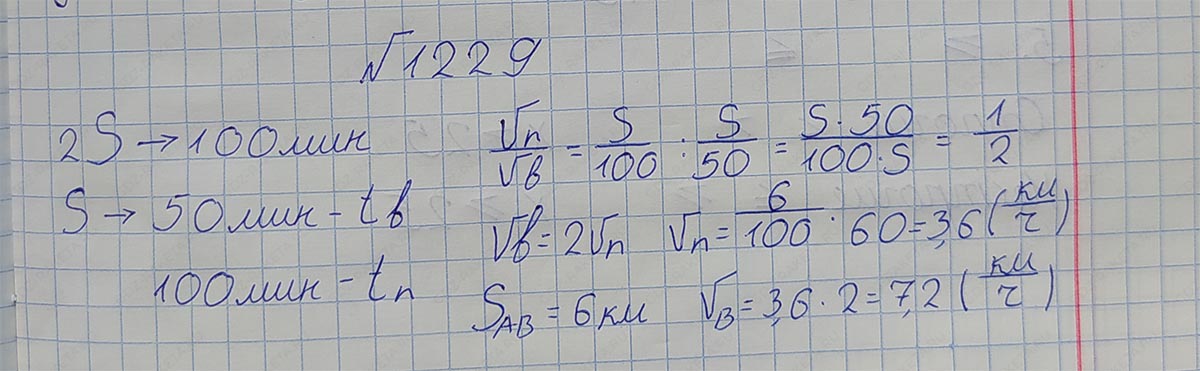 №1229
2S → 100мин
S → 50мин - tв
100мин - tп
Vп/Vв = S/100 : S/50 = S·50/100·S = 1/2
Vв = 2Vп Vп = 6/100 · 60 = 3,6 (км/ч)
SAB = 6км VB = 3,6 · 2 = 7,2 (км/ч)